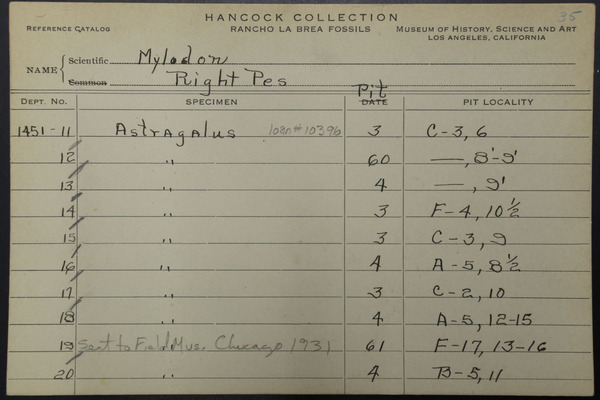 HANCOCK COLLECTION 35
REFERENCE CATALOG RANCHO LA BREA FOSSILS MUSEUM OF HISTORY, SCIENCE AND ART
LOS ANGELES, CALIFORNIA
NAME { Scientific Mylodon
Common Right Pes
Pit
DEPT. NO. SPECIMEN DATE PIT LOCALITY
1451-11 Astragalus loan #10396 3 C-3, 6
12 " 60 —, 8'-9'
13 " 4 —, 9'
14 " 3 F-4, 10 1/2
15 " 3 C-3, 9
16 " 4 A-5, 8 1/2
17 " 3 C-2, 10
18 " 4 A-5, 12-15
19 Sent to Field Mus. Chicago 1931 " 61 F-17, 13-16
20 " 4 B-5, 11